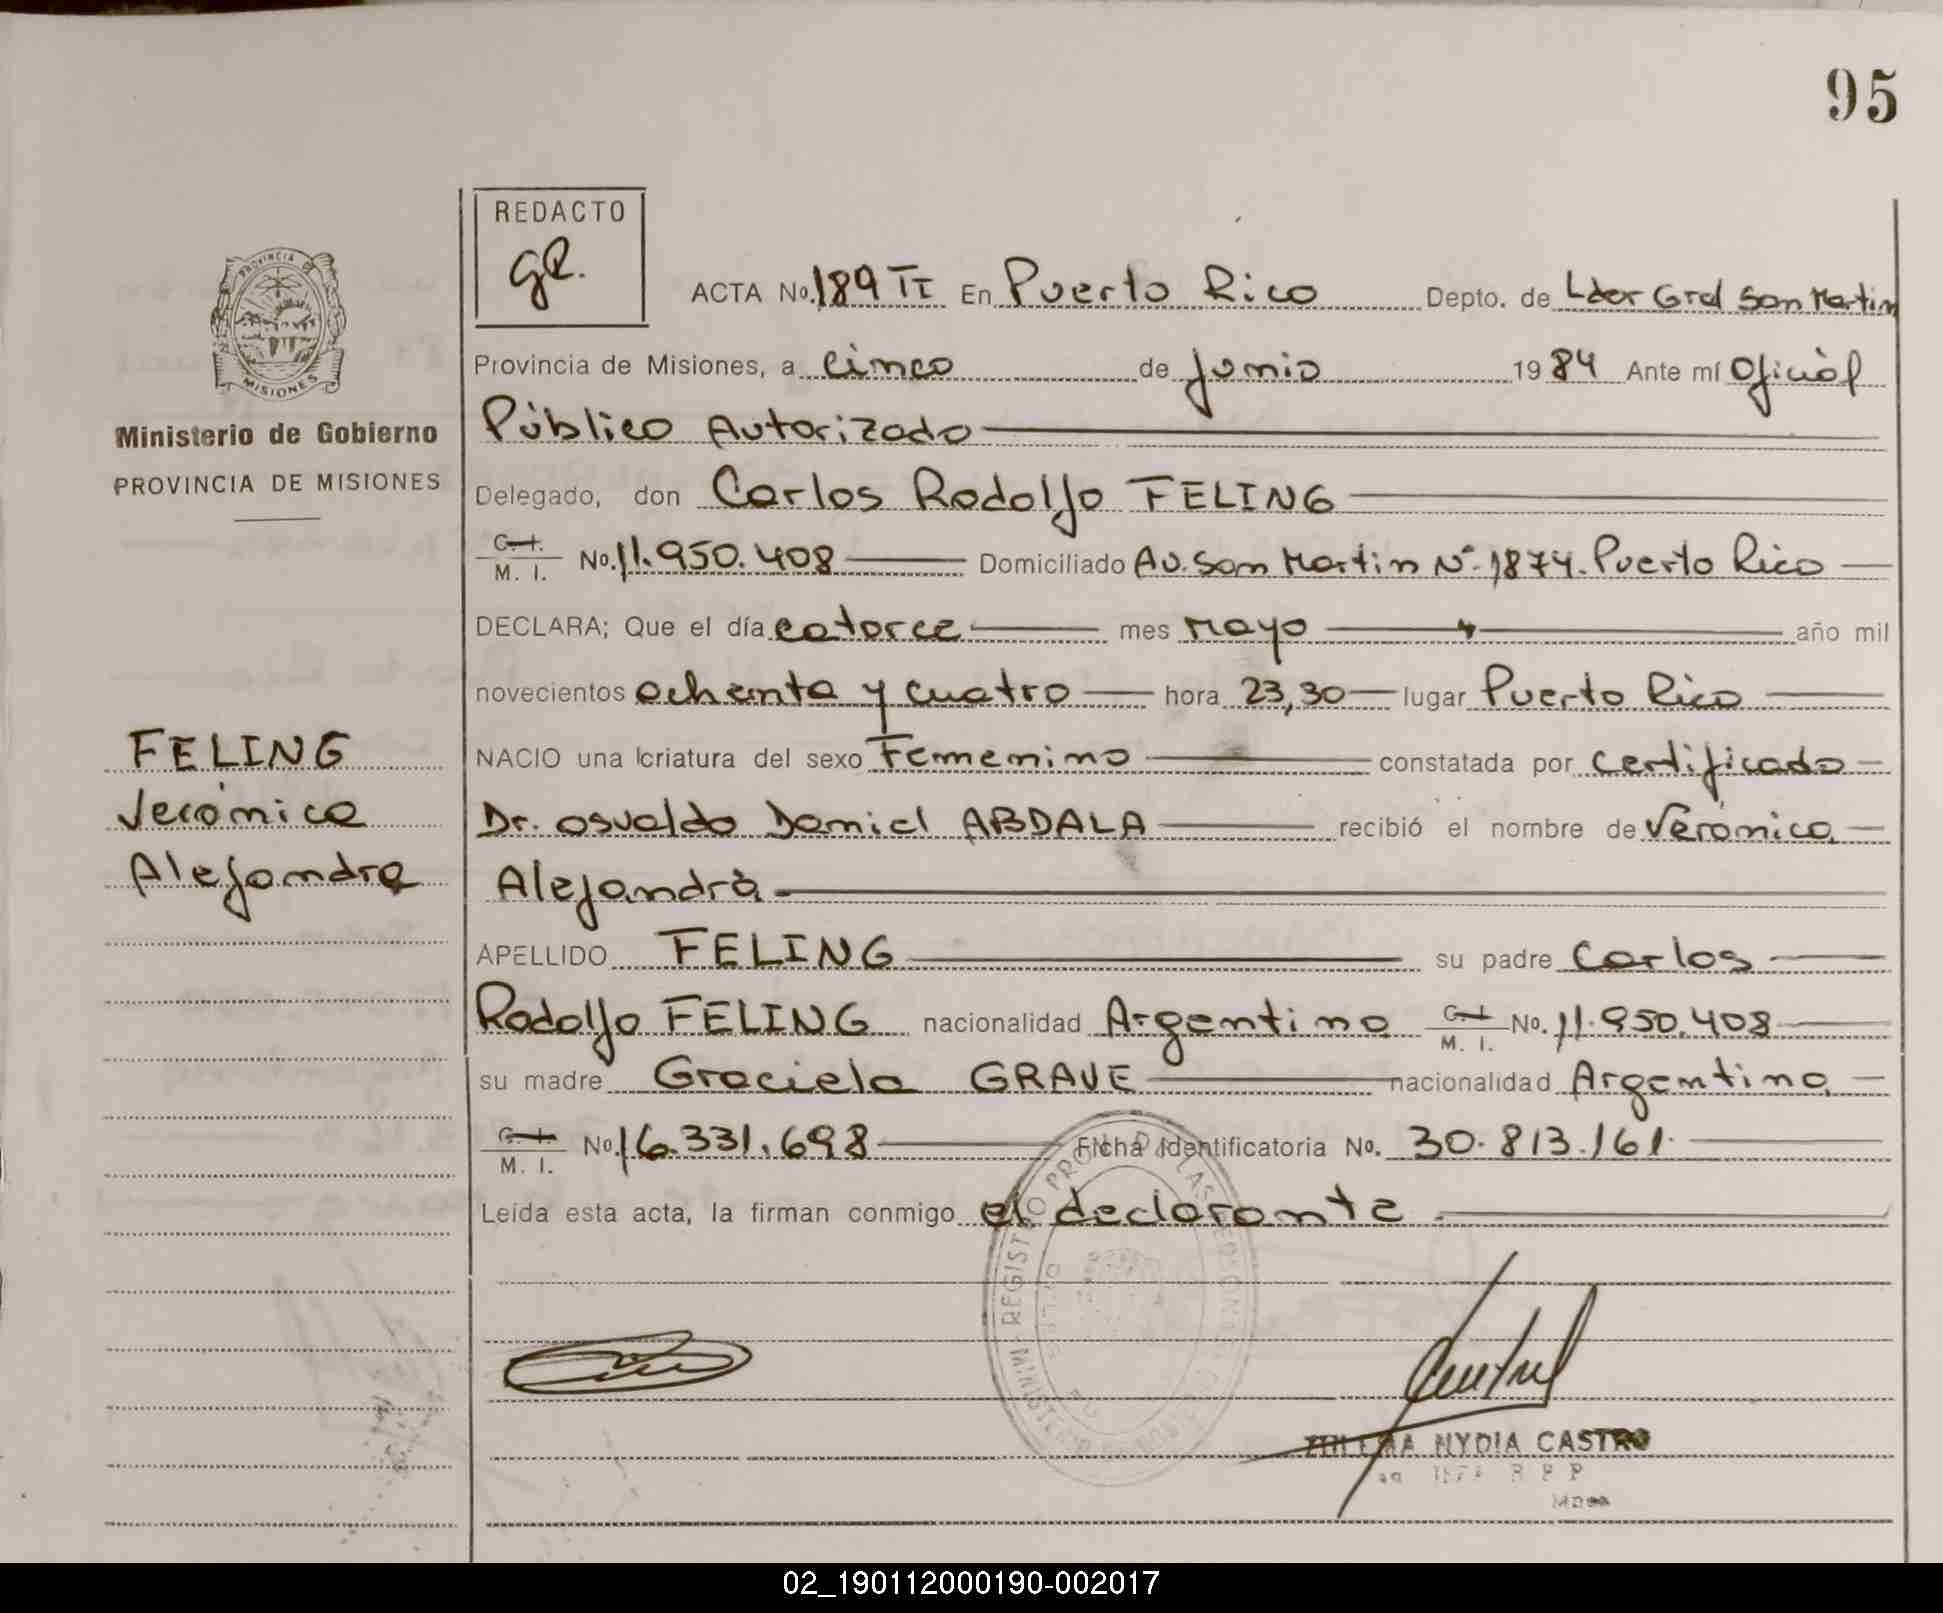 95
REDACTO
gR.
PROVINCIA
MISIONES
Ministerio de Gobierno
PROVINCIA DE MISIONES
ACTA No. 189 TI En Puerto Rico Depto. de Ldor Gral San Martin
Provincia de Misiones, a cinco de Junio 1984 Ante mí Oficial
Público Autorizado
Delegado, don Carlos Rodolfo FELING
C. I. M. I. No. 11.950.408 Domiciliado Av. San Martin Nº 1874. Puerto Rico
DECLARA; Que el día catorce mes Mayo año mil
novecientos ochenta y cuatro hora 23,30 lugar Puerto Rico
FELING
Verónica
Alejandra
NACIO una criatura del sexo Femenino constatada por Certificado
Dr. Osvaldo Daniel ABDALA recibió el nombre de Verónica
Alejandra
APELLIDO FELING su padre Carlos
Rodolfo FELING nacionalidad Argentino C. I. M. I. No. 11.950.408
su madre Graciela GRAVE nacionalidad Argentina
C. I. M. I. No. 16.331.698 Ficha Identificatoria No. 30.813.161
Leída esta acta, la firman conmigo el declarante
ZULEMA NYDIA CASTRO
02_190112000190-002017